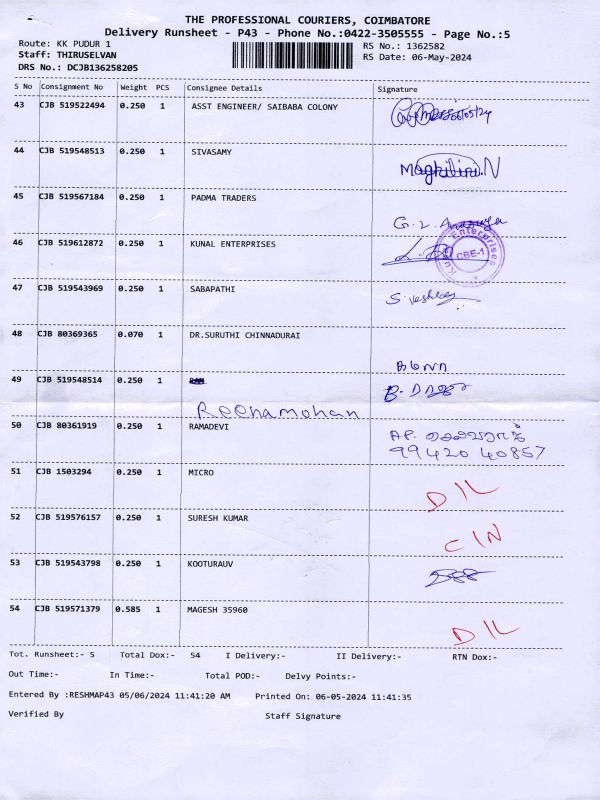 THE PROFESSIONAL COURIERS, COIMBATORE
Delivery Runsheet - P43 - Phone No.:0422-3505555 - Page No.:5
Route: KK PUDUR 1
Staff: THIRUSELVAN
DRS No.: DCJB136258205
RS No.: 1362582
RS Date: 06-May-2024
S No Consignment No Weight PCS Consignee Details Signature
43 CJB 519522494 0.250 1 ASST ENGINEER/ SAIBABA COLONY
44 CJB 519548513 0.250 1 SIVASAMY Maghilini.N
45 CJB 519567184 0.250 1 PADMA TRADERS
G.L.
46 CJB 519612872 0.250 1 KUNAL ENTERPRISES
Enterprises CBE-1
47 CJB 519543969 0.250 1 SABAPATHI
48 CJB 80369365 0.070 1 DR.SURUTHI CHINNADURAI
49 CJB 519548514 0.250 1
Reenamohan
50 CJB 80361919 0.250 1 RAMADEVI
99420 40857
51 CJB 1503294 0.250 1 MICRO
D/L
52 CJB 519576157 0.250 1 SURESH KUMAR
C/N
53 CJB 519543798 0.250 1 KOOTURAUV
54 CJB 519571379 0.585 1 MAGESH 35960
D/L
Tot. Runsheet:- 5 Total Dox:- 54 I Delivery:- II Delivery:- RTN Dox:-
Out Time:- In Time:- Total POD:- Delvy Points:-
Entered By :RESHMAP43 05/06/2024 11:41:20 AM Printed On: 06-05-2024 11:41:35
Verified By Staff Signature